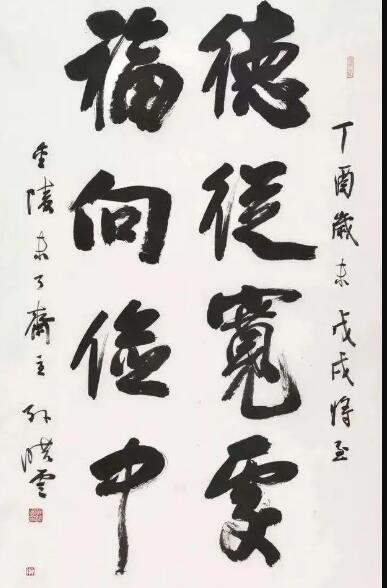 丁酉歲末戊戌將至
德從寬處
福向儉中
金陵未了齋主孫曉雲